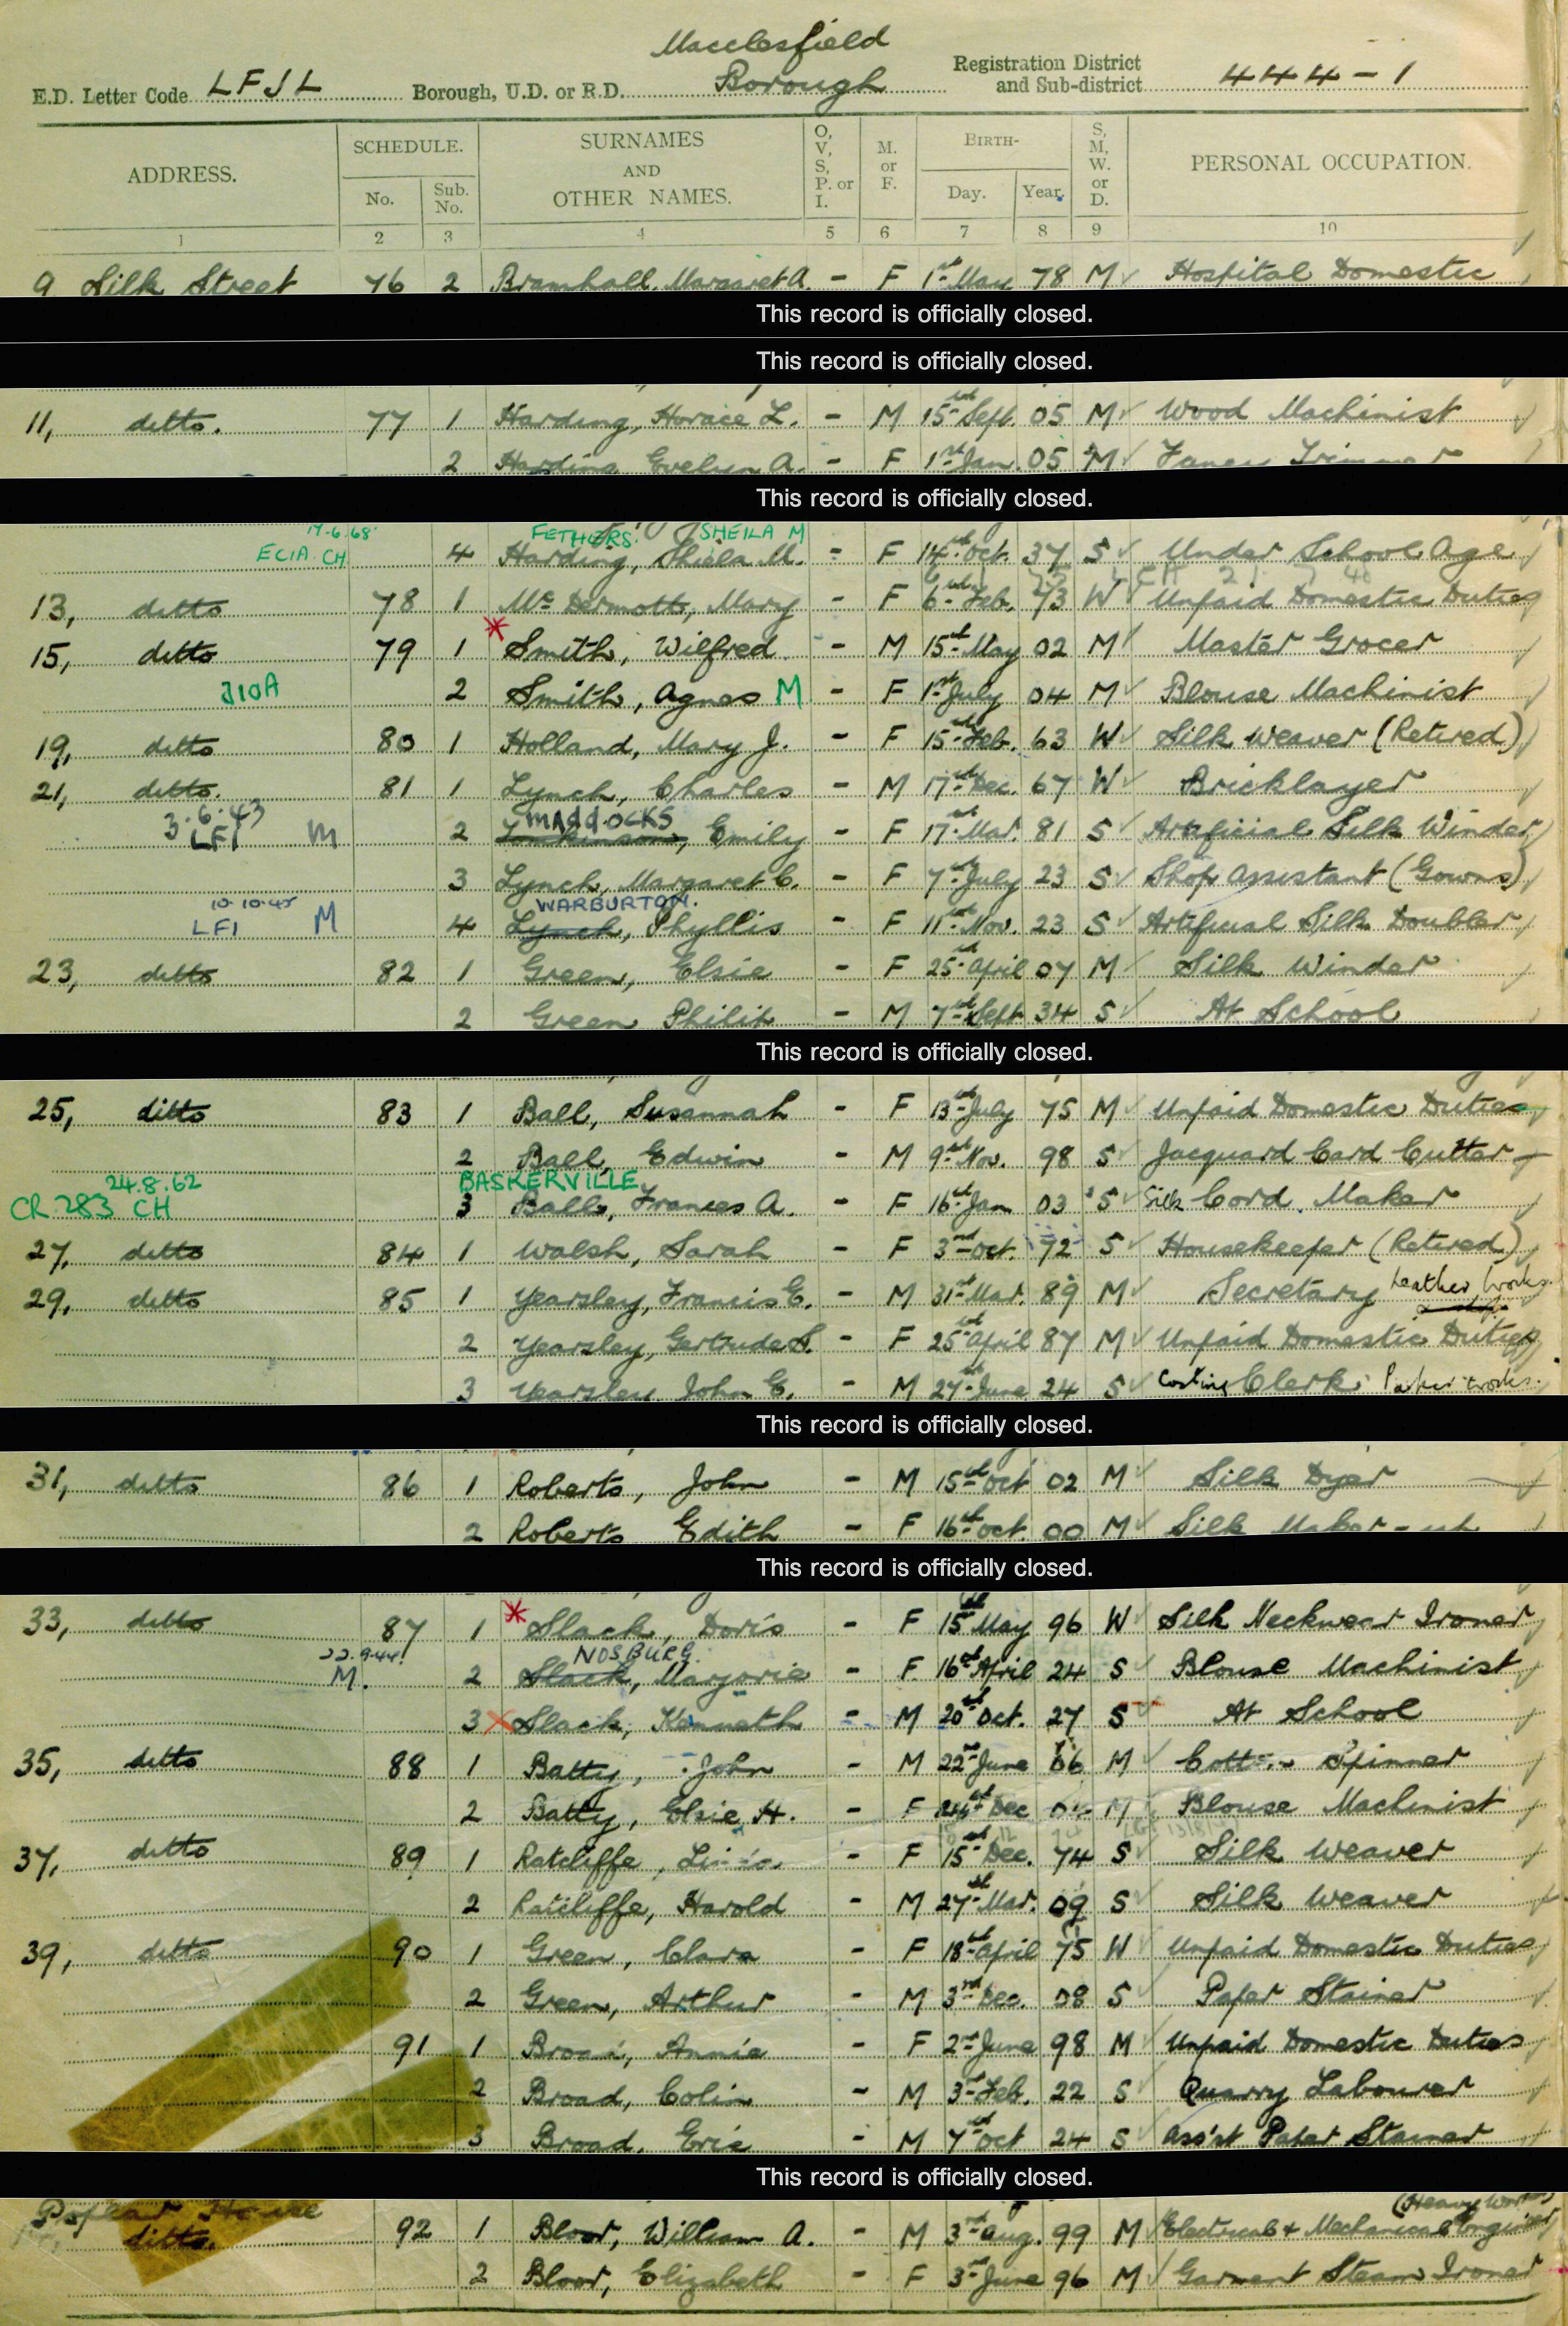 Macclesfield
E.D. Letter Code LFJL Borough, U.D. or R.D. Borough Registration District and Sub-district 444-1
ADDRESS. SCHEDULE. No. Sub. No. SURNAMES AND OTHER NAMES. O, V, S, P. or I. M. or F. BIRTH- Day. Year. S, M, W. or D. PERSONAL OCCUPATION.
1 2 3 4 5 6 7 8 9 10
9 Silk Street 76 2 Bramhall, Margaret A. - F 1st May 78 M Hospital Domestic
This record is officially closed.
This record is officially closed.
11, ditto. 77 1 Harding, Horace L. - M 15th Sept. 05 M Wood Machinist
2 Harding Evelyn A. - F 1st Jan. 05 M Fancy Trimmer
This record is officially closed.
FETHERS. SHEILA M
ECIA CH 4 Harding, Shiela M. - F 14th Oct. 37 S Under School Age
13, ditto 78 1 Mc Dermott, Mary - F 6th Feb. 73 W Unpaid Domestic Duties
15, ditto 79 1 Smith, Wilfred - M 15th May 02 M Master Grocer
J10A 2 Smith, Agnes M - F 1st July 04 M Blouse Machinist
19, ditto 80 1 Holland, Mary J. - F 15th Feb. 63 W Silk Weaver (Retired)
21, ditto. 81 1 Lynch, Charles - M 17th Dec. 67 W Bricklayer
3.6.43 MADDOCKS
LFI M 2 Tomkinson, Emily - F 17th Mar. 81 S Artificial Silk Winder
3 Lynch, Margaret C. - F 7th July 23 S Shop Assistant (Gowns)
10.10.45 WARBURTON.
LFI M 4 Lynch, Phyllis - F 11th Nov. 23 S Artificial Silk Doubler
23, ditto 82 1 Green, Elsie - F 25th April 07 M Silk Winder
2 Green Philip - M 7th Sept 34 S At School
This record is officially closed.
25, ditto 83 1 Ball, Susannah - F 13th July 75 M Unpaid Domestic Duties
2 Ball, Edwin - M 9th Nov. 98 S Jacquard Card Cutter
24.8.62 BASKERVILLE
CR 283 CH 3 Ball, Frances A. - F 16th Jan 03 S Silk Cord Maker
27, ditto 84 1 Walsh, Sarah - F 3rd Oct. 72 S Housekeeper (Retired)
29, ditto 85 1 Yearsley, Francis E. - M 31st Mar. 89 M Secretary Leather Works
2 Yearsley, Gertrude S. - F 25th April 87 M Unpaid Domestic Duties
3 Yearsley John E. - M 27th June 24 S Costing Clerk Paper works.
This record is officially closed.
31, ditto 86 1 Roberts, John - M 15th Oct 02 M Silk Dyer
2 Roberts Edith - F 16th Oct. 00 M Silk Maker-up
This record is officially closed.
33, ditto 87 1 Slack, Doris - F 15th May 96 W Silk Neckwear Ironer
22.9.44. NOSBURG.
M. 2 Slack, Marjorie - F 16th April 24 S Blouse Machinist
3 Slack, Kenneth - M 20th Oct. 27 S At School
35, ditto 88 1 Batty, John - M 22nd June 06 M Cotton Spinner
2 Batty, Elsie H. - F 24th Dec M Blouse Machinist
37, ditto 89 1 Ratcliffe, - F 15th Dec. 74 S Silk Weaver
2 Ratcliffe, Harold - M 27th Mar. 09 S Silk Weaver
39, ditto 90 1 Green, Clara - F 18th April 75 W Unpaid Domestic Duties
2 Green, Arthur - M 3rd Dec. 08 S Paper Stainer
91 1 Broad, Annie - F 2nd June 98 M Unpaid Domestic Duties
2 Broad, Colin - M 3rd Feb. 22 S Quarry Labourer
3 Broad, Eric - M 7th Oct 24 S Ass't Paper Stainer
This record is officially closed.
Poplar House (Heavy Works)
ditto. 92 1 Bloor, William A. - M 3rd Aug. 99 M Electrical & Mechanical Engineer
2 Bloor, Elizabeth - F 3rd June 96 M Garment Steam Ironer